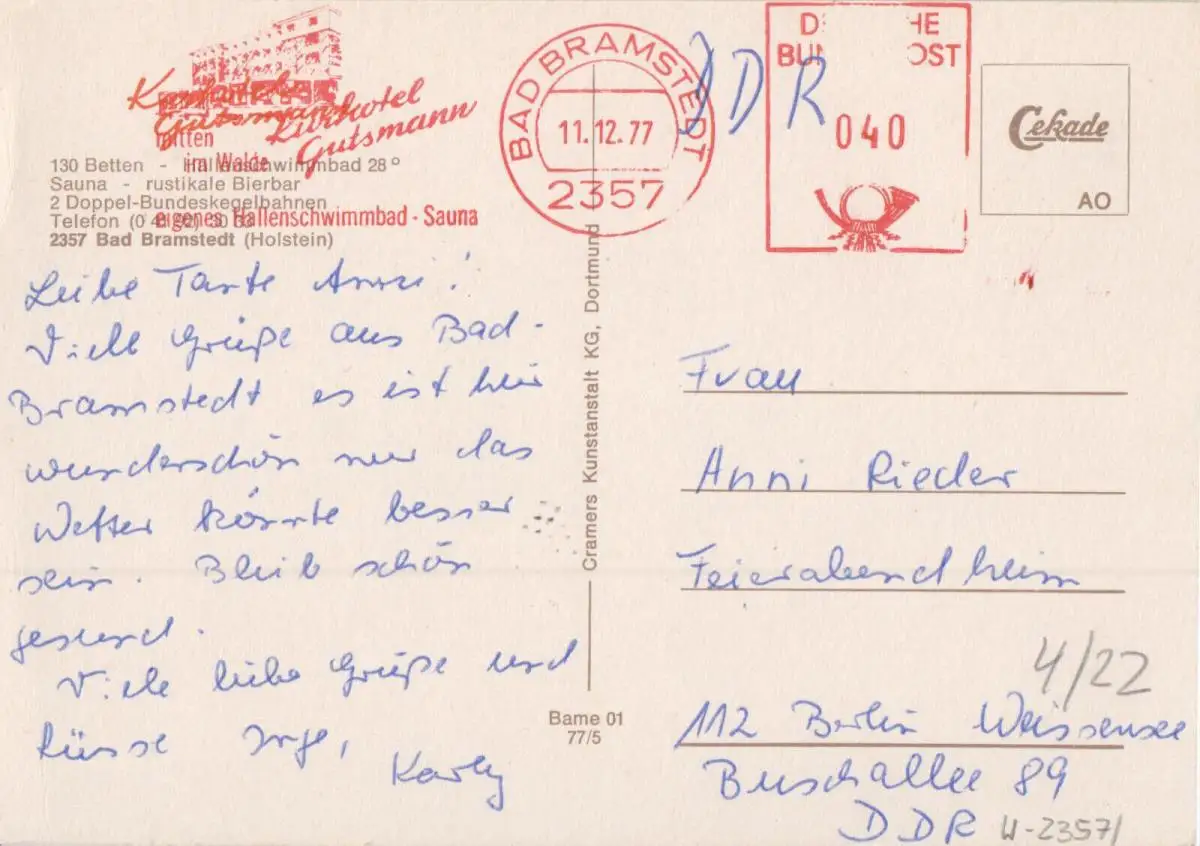 Kurhotel
Gutsmann
Kurhotel
Gutsmann
mitten
im Walde
eigenes Hallenschwimmbad · Sauna
130 Betten - Hallenschwimmbad 28°
Sauna - rustikale Bierbar
2 Doppel-Bundeskegelbahnen
Telefon (0
2357 Bad Bramstedt (Holstein)
BAD BRAMSTEDT
11.12.77
2357
DDR
D HE
BUN OST
040
Cekade
AO
Liebe Tante Anni!
Viele Grüße aus Bad-
Bramstedt es ist hier
wunderschön nur das
Wetter könnte besser
sein. Bleib schön
gesund.
Viele liebe Grüße und
Küsse Inge,
Karly
Cramers Kunstanstalt KG, Dortmund
Bame 01
77/5
Frau
Anni Rieder
Feierabendheim
4/22
112 Berlin Weissensee
Buschallee 89
DDR W-2357/